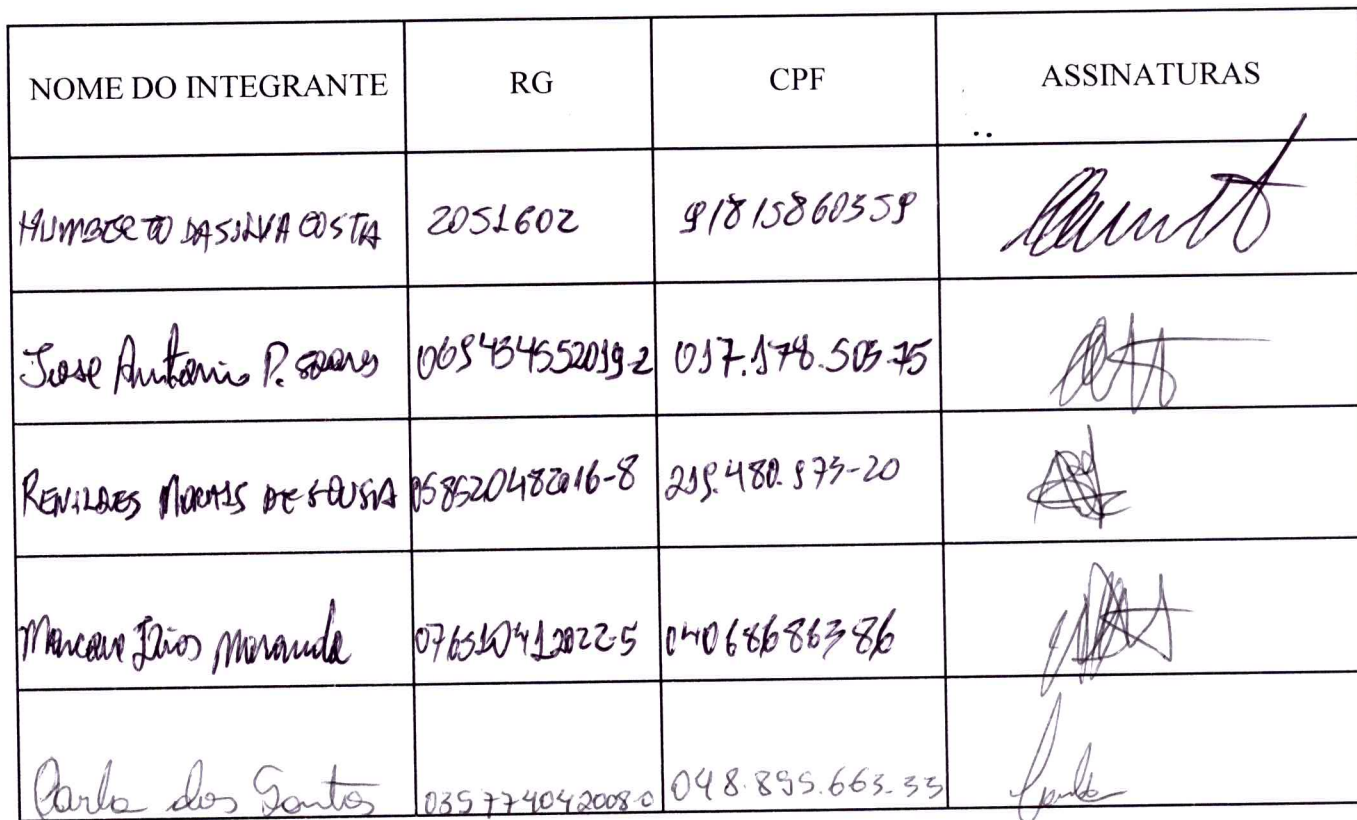 NOME DO INTEGRANTE RG CPF ASSINATURAS
HUMBERTO DA SILVA COSTA 2051602 91815860359
Jose Antonio P. Soares 069434552019-2 017.178.503.75
RENILDES MORAIS DE SOUSA 058520482016-8 219.480.973-20
Miranda 076510412022-5 04068686386
Carla dos Santos 035774042008-0 048.895.663.33